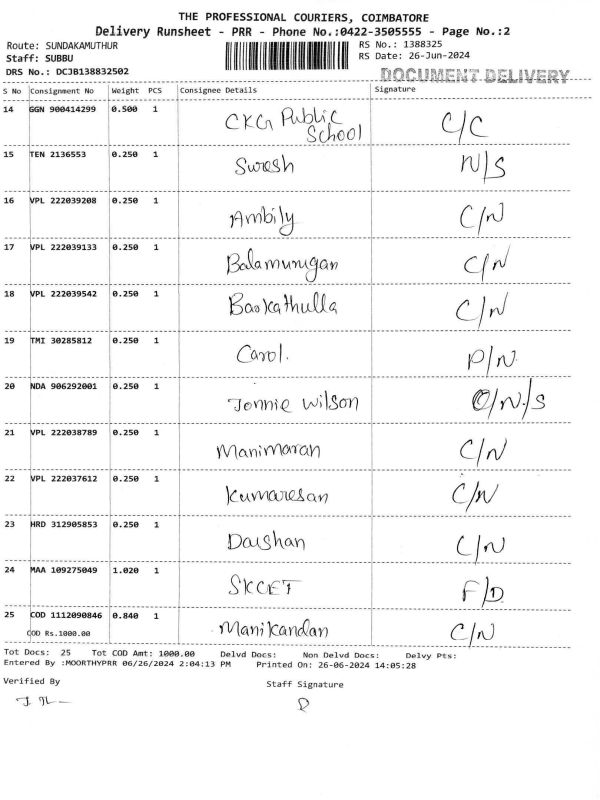 THE PROFESSIONAL COURIERS, COIMBATORE
Delivery Runsheet - PRR - Phone No.:0422-3505555 - Page No.:2
Route: SUNDAKAMUTHUR
RS No.: 1388325
Staff: SUBBU
RS Date: 26-Jun-2024
DRS No.: DCJB138832502
DOCUMENT DELIVERY
S No Consignment No Weight PCS Consignee Details Signature
14 GGN 900414299 0.500 1 CKG Public School C/C
15 TEN 2136553 0.250 1 Suresh N/S
16 VPL 222039208 0.250 1 Ambily C/N
17 VPL 222039133 0.250 1 Balamurugan C/N
18 VPL 222039542 0.250 1 Barkathulla C/N
19 TMI 30285812 0.250 1 Carol. P/N
20 NDA 906292001 0.250 1 Jonnie Wilson O/N/S
21 VPL 222038789 0.250 1 Manimaran C/N
22 VPL 222037612 0.250 1 Kumaresan C/N
23 HRD 312905853 0.250 1 Darshan C/N
24 MAA 109275049 1.020 1 SKCET F/D
25 COD 1112090846 0.840 1 Manikandan C/N
COD Rs.1000.00
Tot Docs: 25 Tot COD Amt: 1000.00 Delvd Docs: Non Delvd Docs: Delvy Pts:
Entered By :MOORTHYPRR 06/26/2024 2:04:13 PM Printed On: 26-06-2024 14:05:28
Verified By
Staff Signature